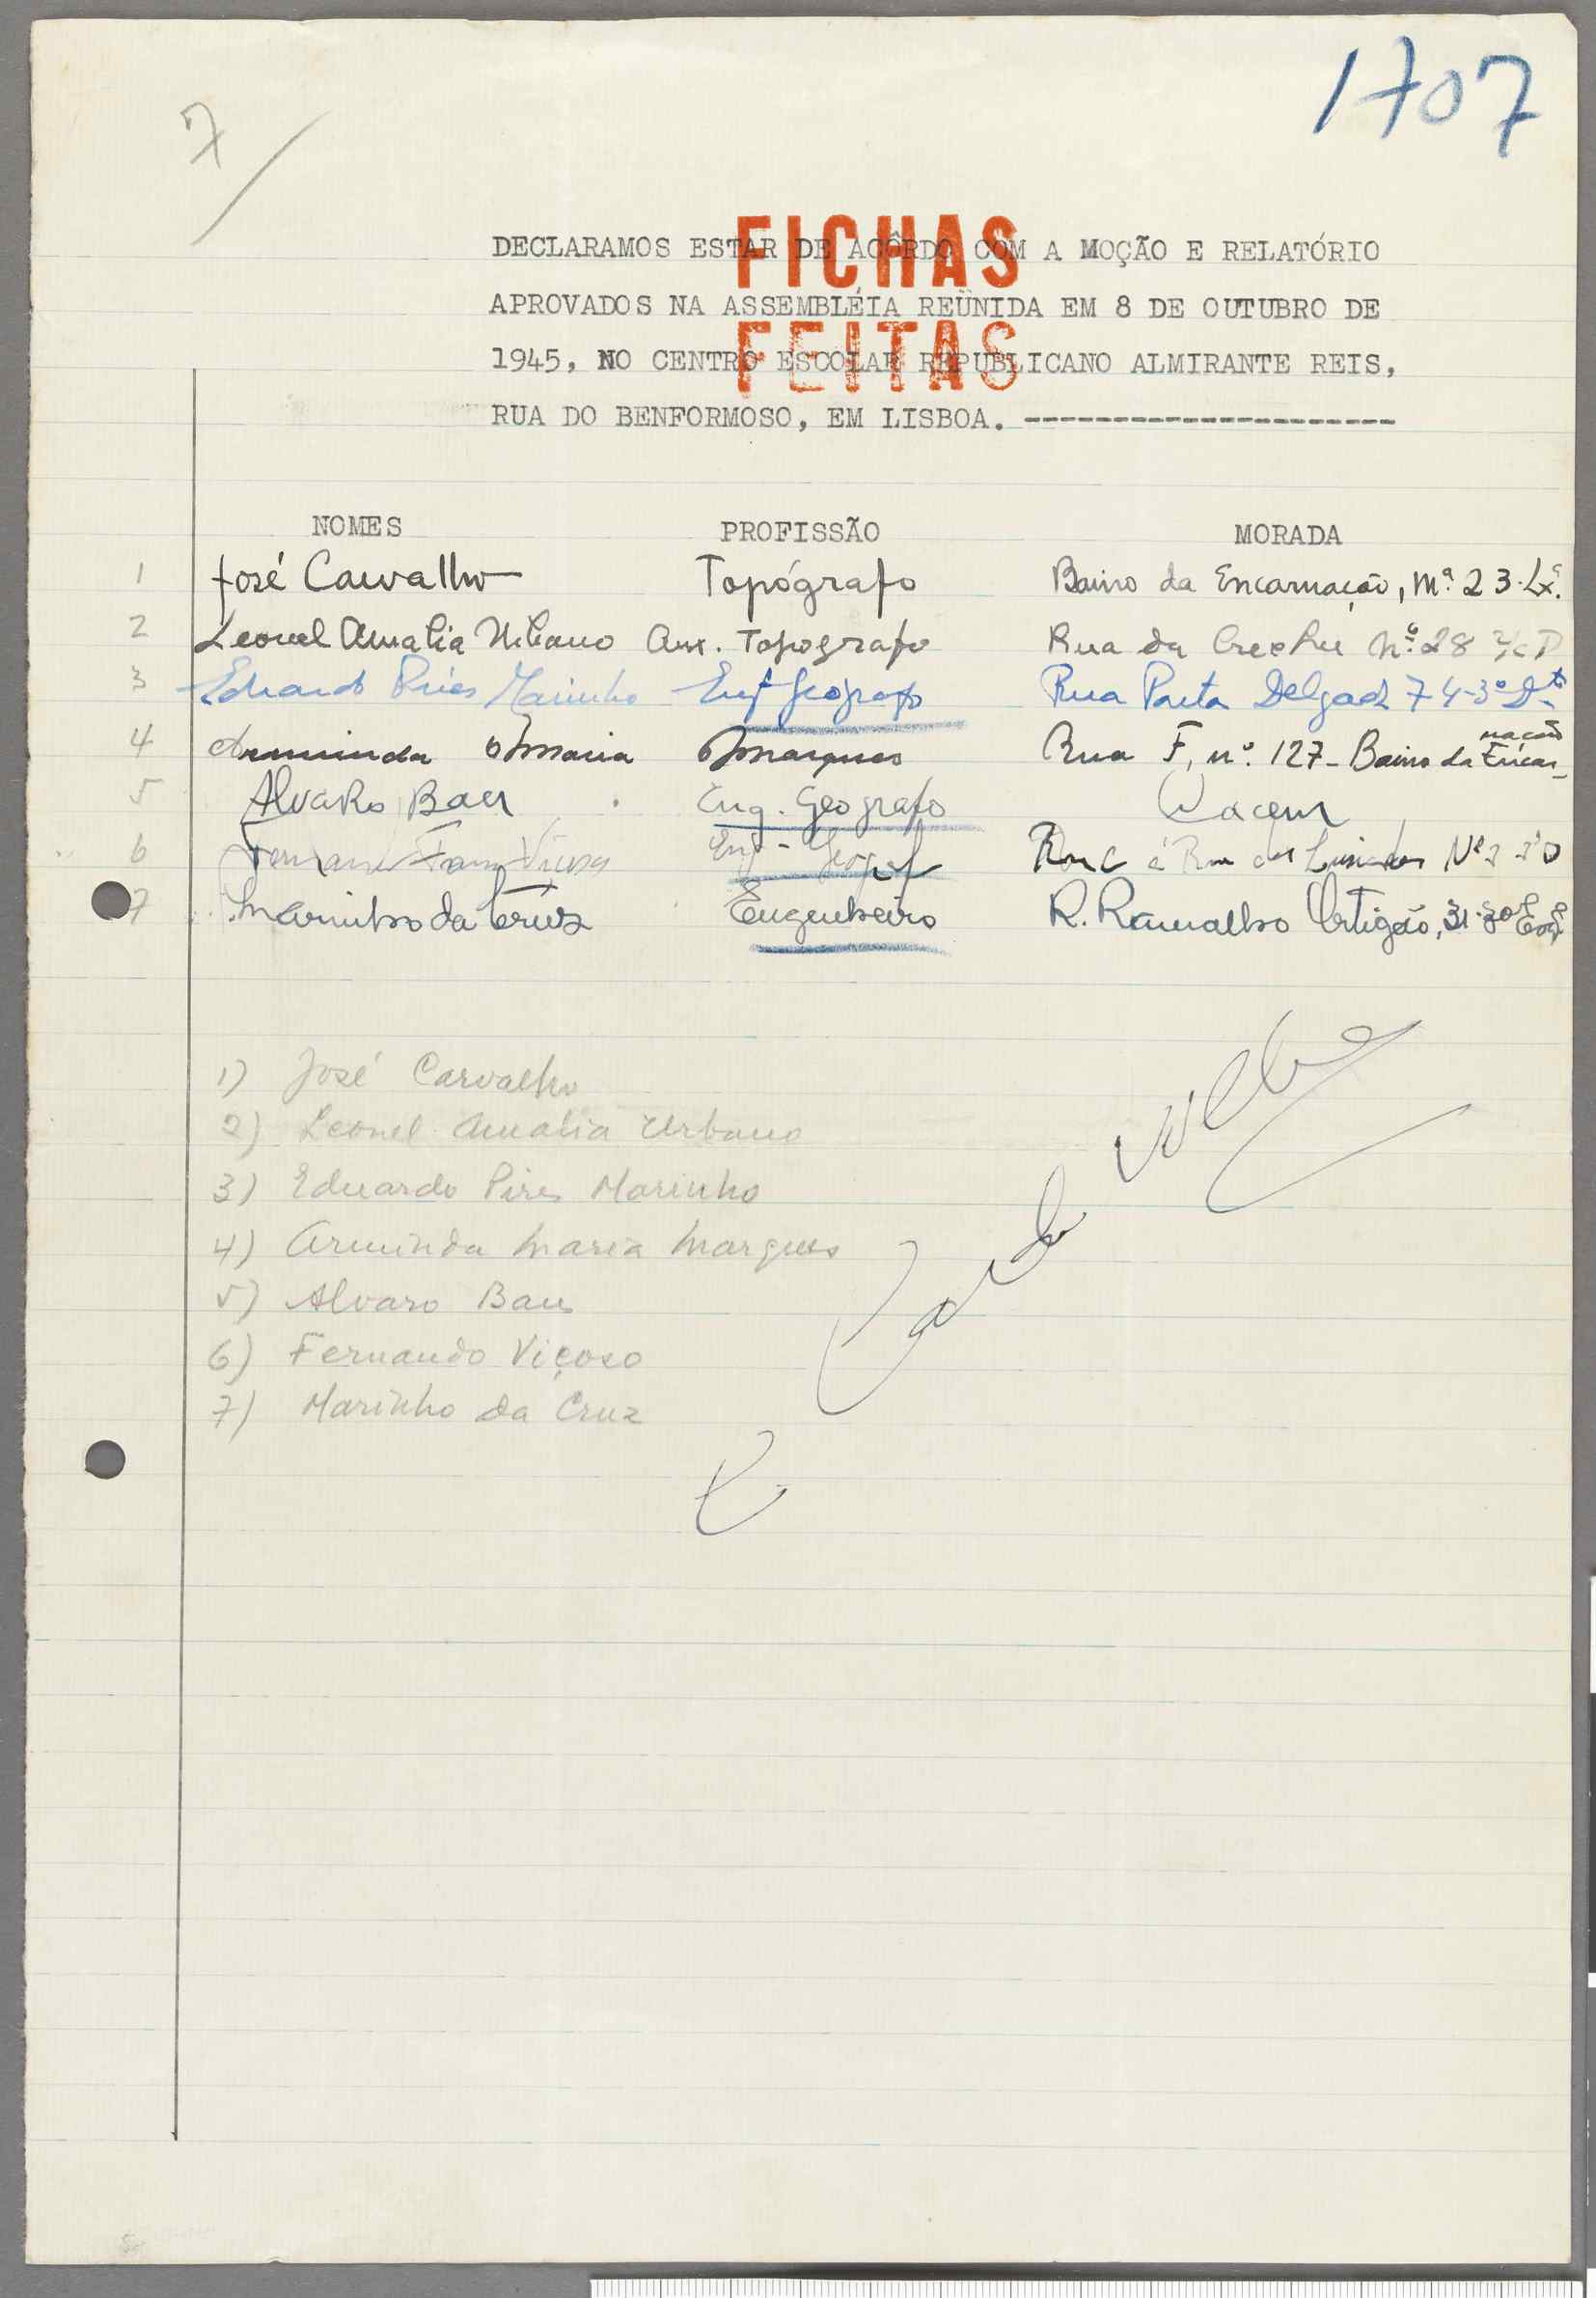 1707
7
FICHAS
FEITAS
DECLARAMOS ESTAR DE ACÔRDO COM A MOÇÃO E RELATÓRIO
APROVADOS NA ASSEMBLÉIA REÜNIDA EM 8 DE OUTUBRO DE
1945, NO CENTRO ESCOLAR REPUBLICANO ALMIRANTE REIS,
RUA DO BENFORMOSO, EM LISBOA. ---------------------
NOMES PROFISSÃO MORADA
1 José Carvalho Topógrafo Bairro da Encarnação, 23-Lx.ª
2 Leonel Amalia Urbano Aux. Topografo Rua da Creche n.º 28 r/c D
3 Eduardo Pires Marinho Eng.º Geógrafo Rua Ponta Delgada 74-3º Dt.º
4 Arminda Maria Marques Rua F, nº. 127-Bairro da Encarnação
5 Alvaro Baer Eng. Geografo Cacem
6 Fernando Viçoso Eng.º Geógrafo Rua C à Rua dos Lusiadas Nº 2
7 Marinho da Cruz Engenheiro R. Ramalho Ortigão, 31-3º Esq.
1) José Carvalho
2) Leonel Amalia Urbano
3) Eduardo Pires Marinho
4) Arminda Maria Marques
5) Alvaro Baer
6) Fernando Viçoso
7) Marinho da Cruz